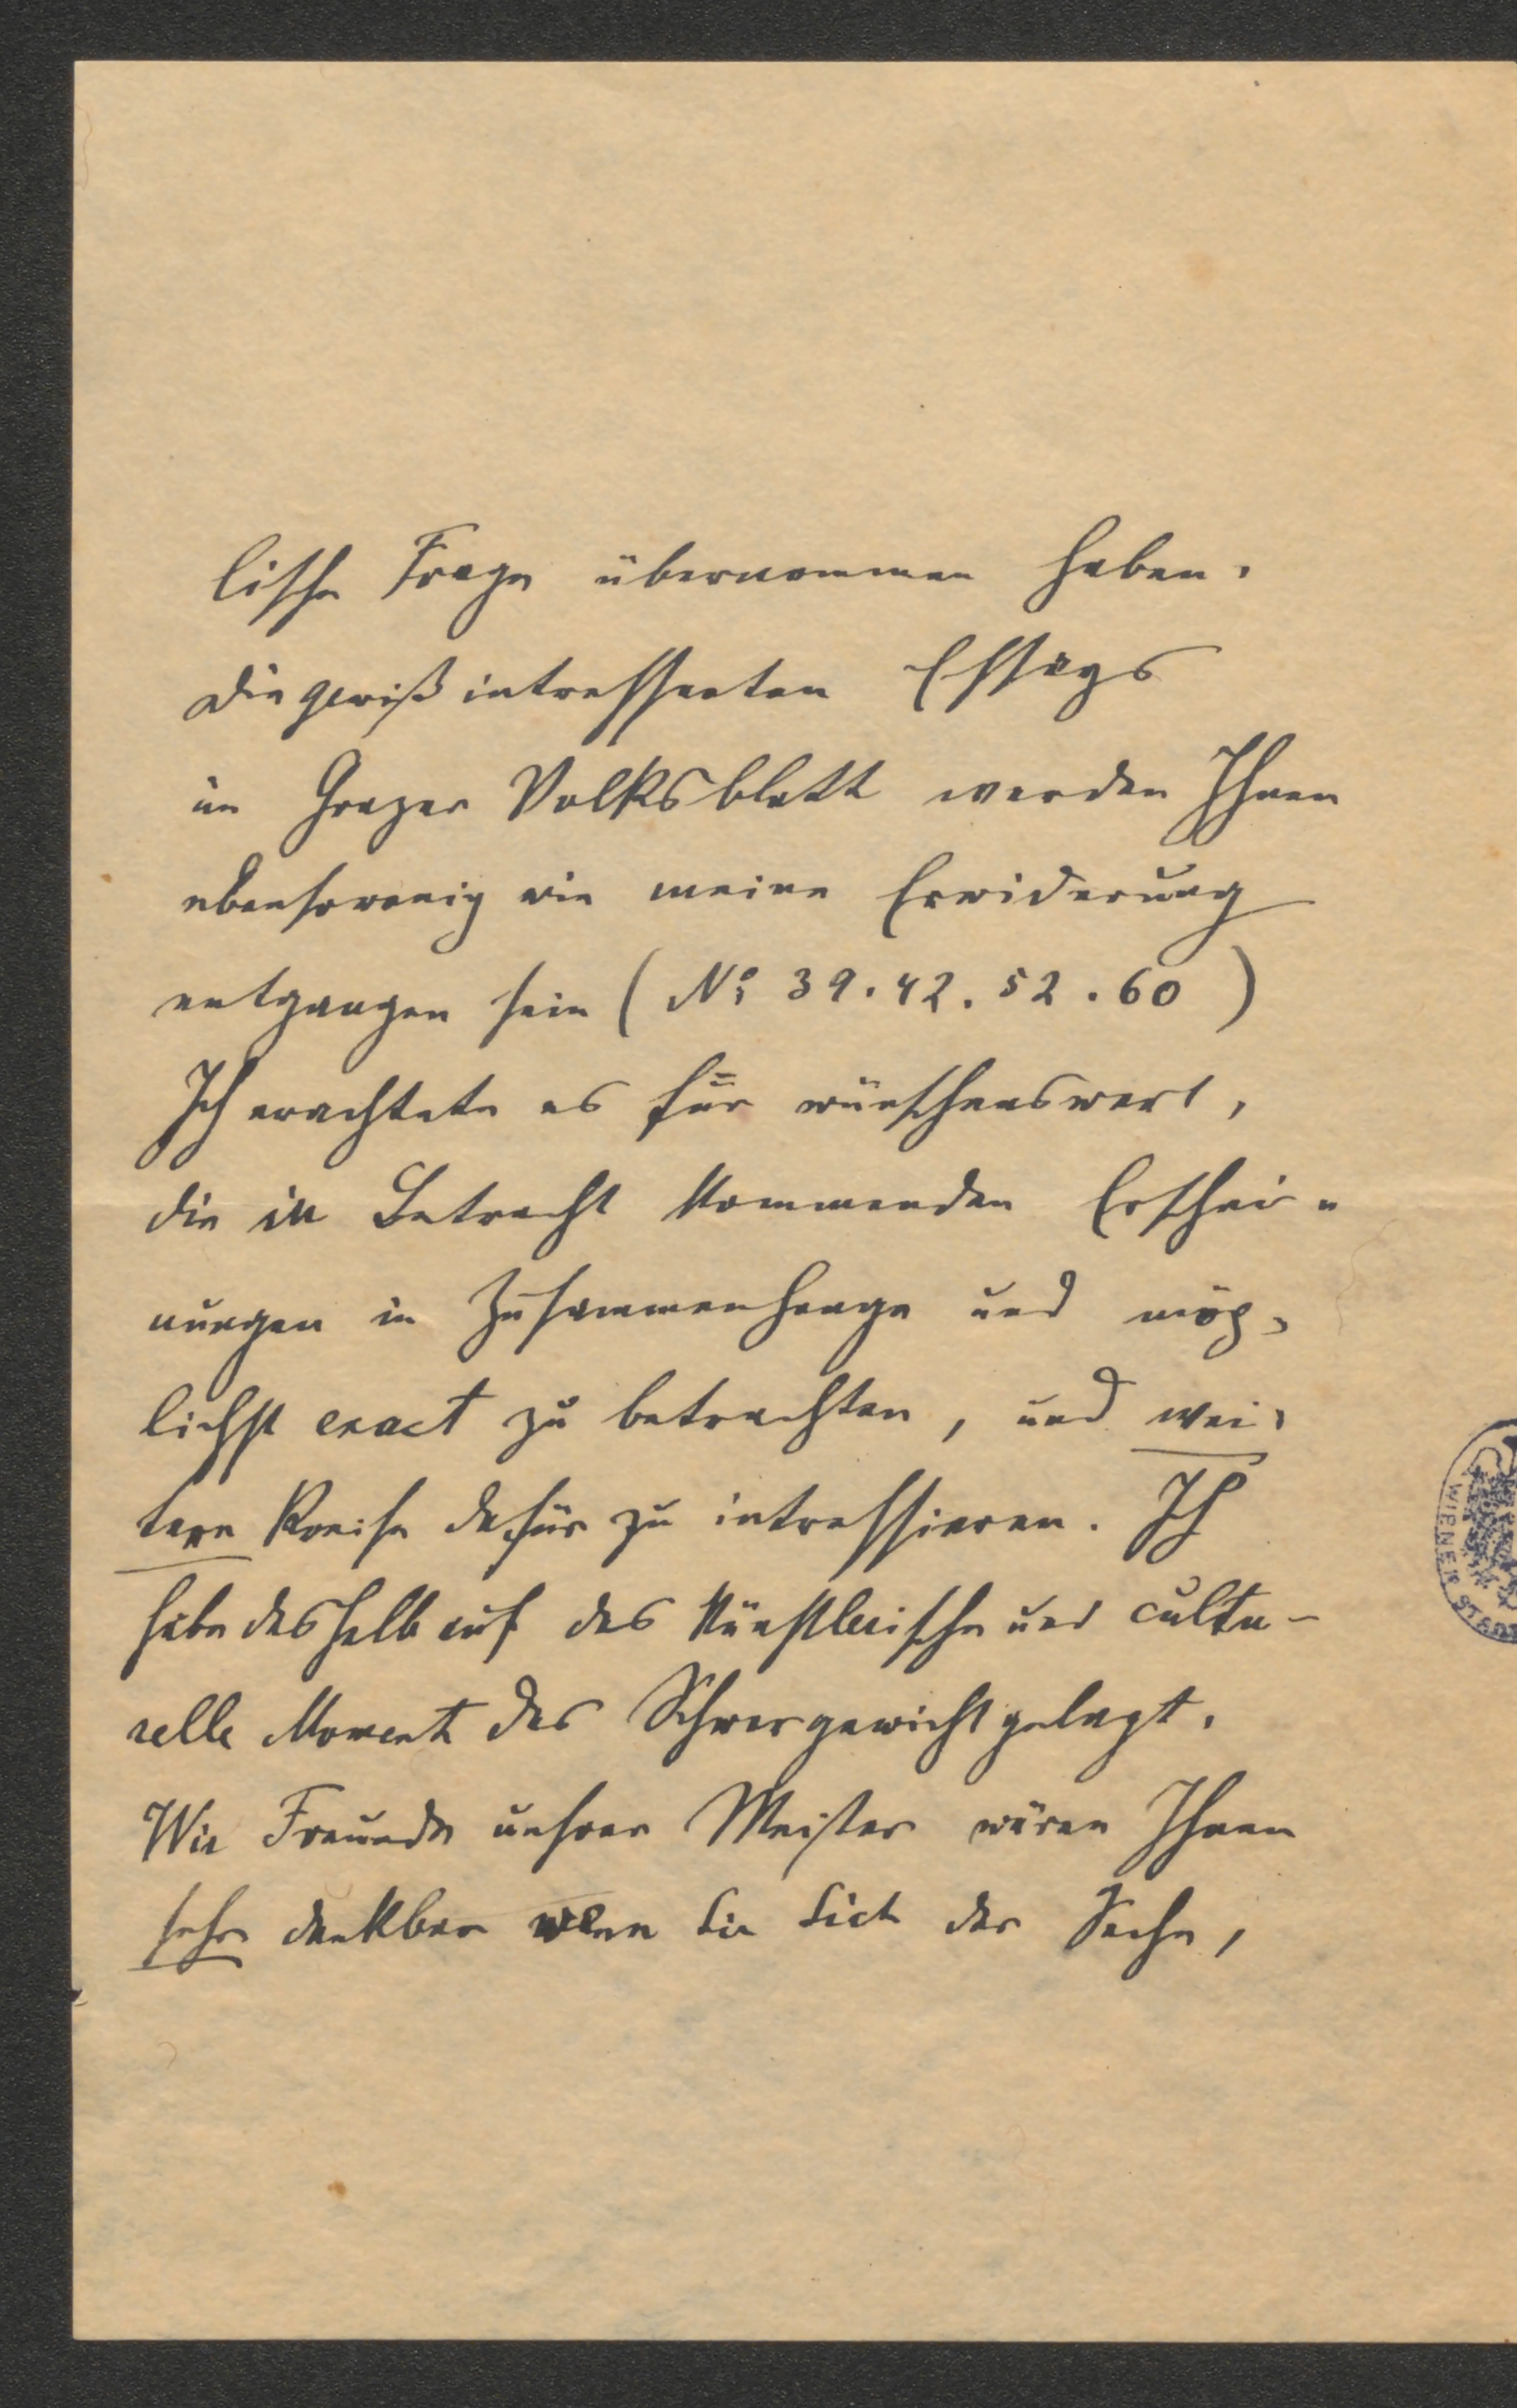 lische Frage übernommen haben.
Die gewiß intressanten Essays
im Grazer Volksblatt werden Ihnen
ebensowenig wie meine Erwiderung
entgangen sein (No 39. 42. 52. 60)
Ich erachtete es für wünschenswert,
die in Betracht kommenden Erschei-
nungen im Zusammenhange und mög-
lichst exact zu betrachten, und wei-
tere Kreise dafür zu intressieren. Ich
habe deshalb auf das künstlerische und cultu-
relle Moment das Schwergewicht gelegt.
Wir Freunde unsrer Meister wären Ihnen
sehr dankbar wenn Sie Sich der Sache,
WIENER STADT